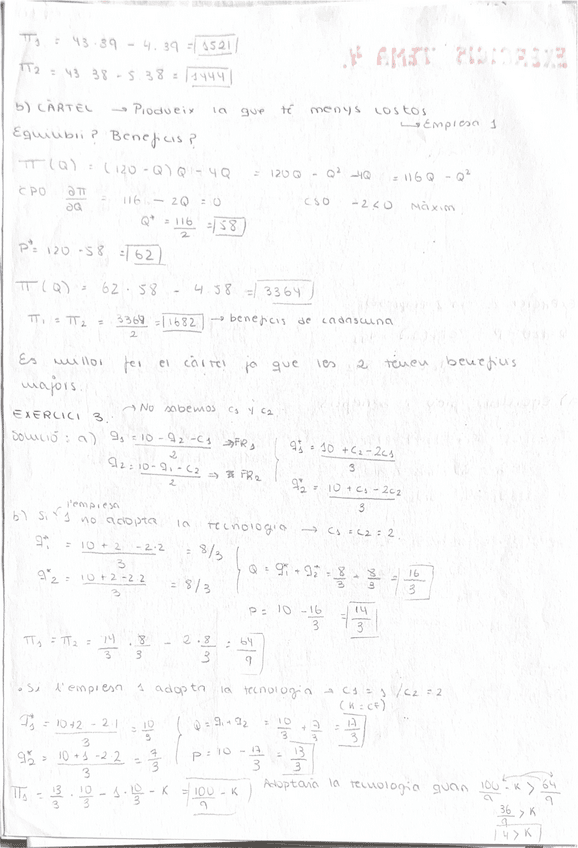 EXERCICIS TEMA 4.
π1 = 43·39 - 4·39 = 1521
π2 = 43·38 - 5·38 = 1444
b) CÀRTEL → Produeix la que té menys costos
↳ Empresa 1
Equilibri? Beneficis?
π(Q) = (120-Q)Q - 4Q = 120Q - Q² - 4Q = 116Q - Q²
CPO ∂π/∂Q = 116 - 2Q = 0 CSO -2<0 Màxim
Q* = 116/2 = 58
P* = 120 - 58 = 62
π(Q) = 62·58 - 4·58 = 3364
π1 = π2 = 3364/2 = 1682 → beneficis de cadascuna
Es millor fer el càrtel ja que les 2 tenen beneficis
majors.
EXERCICI 3. → No sabemos c1 y c2
Solució: a) q1 = 10 - q2 - c1 / 2 → FR1 q1* = 10 + c2 - 2c1 / 3
q2 = 10 - q1 - c2 / 2 → FR2 q2* = 10 + c1 - 2c2 / 3
l'empresa
b) Si 1 no adopta la tecnologia → c1 = c2 = 2.
q1* = 10 + 2 - 2·2 / 3 = 8/3
q2* = 10 + 2 - 2·2 / 3 = 8/3 Q = q1* + q2* = 8/3 + 8/3 = 16/3
P = 10 - 16/3 = 14/3
π1 = π2 = 14/3 · 8/3 - 2·8/3 = 64/9
• Si l'empresa 1 adopta la tecnologia → c1 = 1 / c2 = 2
(K = CF)
q1* = 10 + 2 - 2·1 / 3 = 10/3 Q = q1 + q2 = 10/3 + 7/3 = 17/3
q2* = 10 + 1 - 2·2 / 3 = 7/3 P = 10 - 17/3 = 13/3
π1 = 13/3 · 10/3 - 1·10/3 - K = 100/9 - K Adoptaria la tecnologia quan 100/9 - K > 64/9
36/9 > K
4 > K